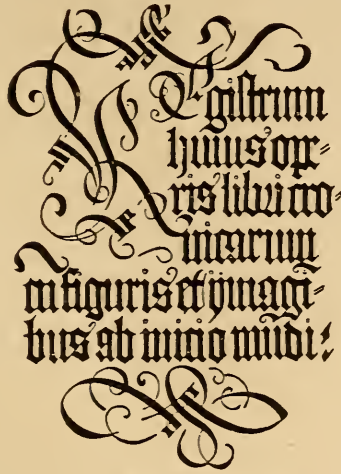 Registrum
huius ope-
ris libri cro-
nicarum
cũ figuris et ymagi-
bus ab inicio mũdi: